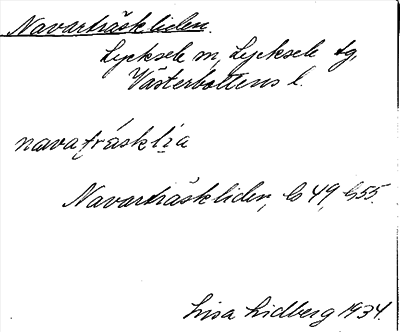 Navarträskliden.
Lycksele m, Lycksele tg,
Västerbottens l.
navaträsklia
Navarträskliden, 49, 55.
Lisa Lidberg 1934.